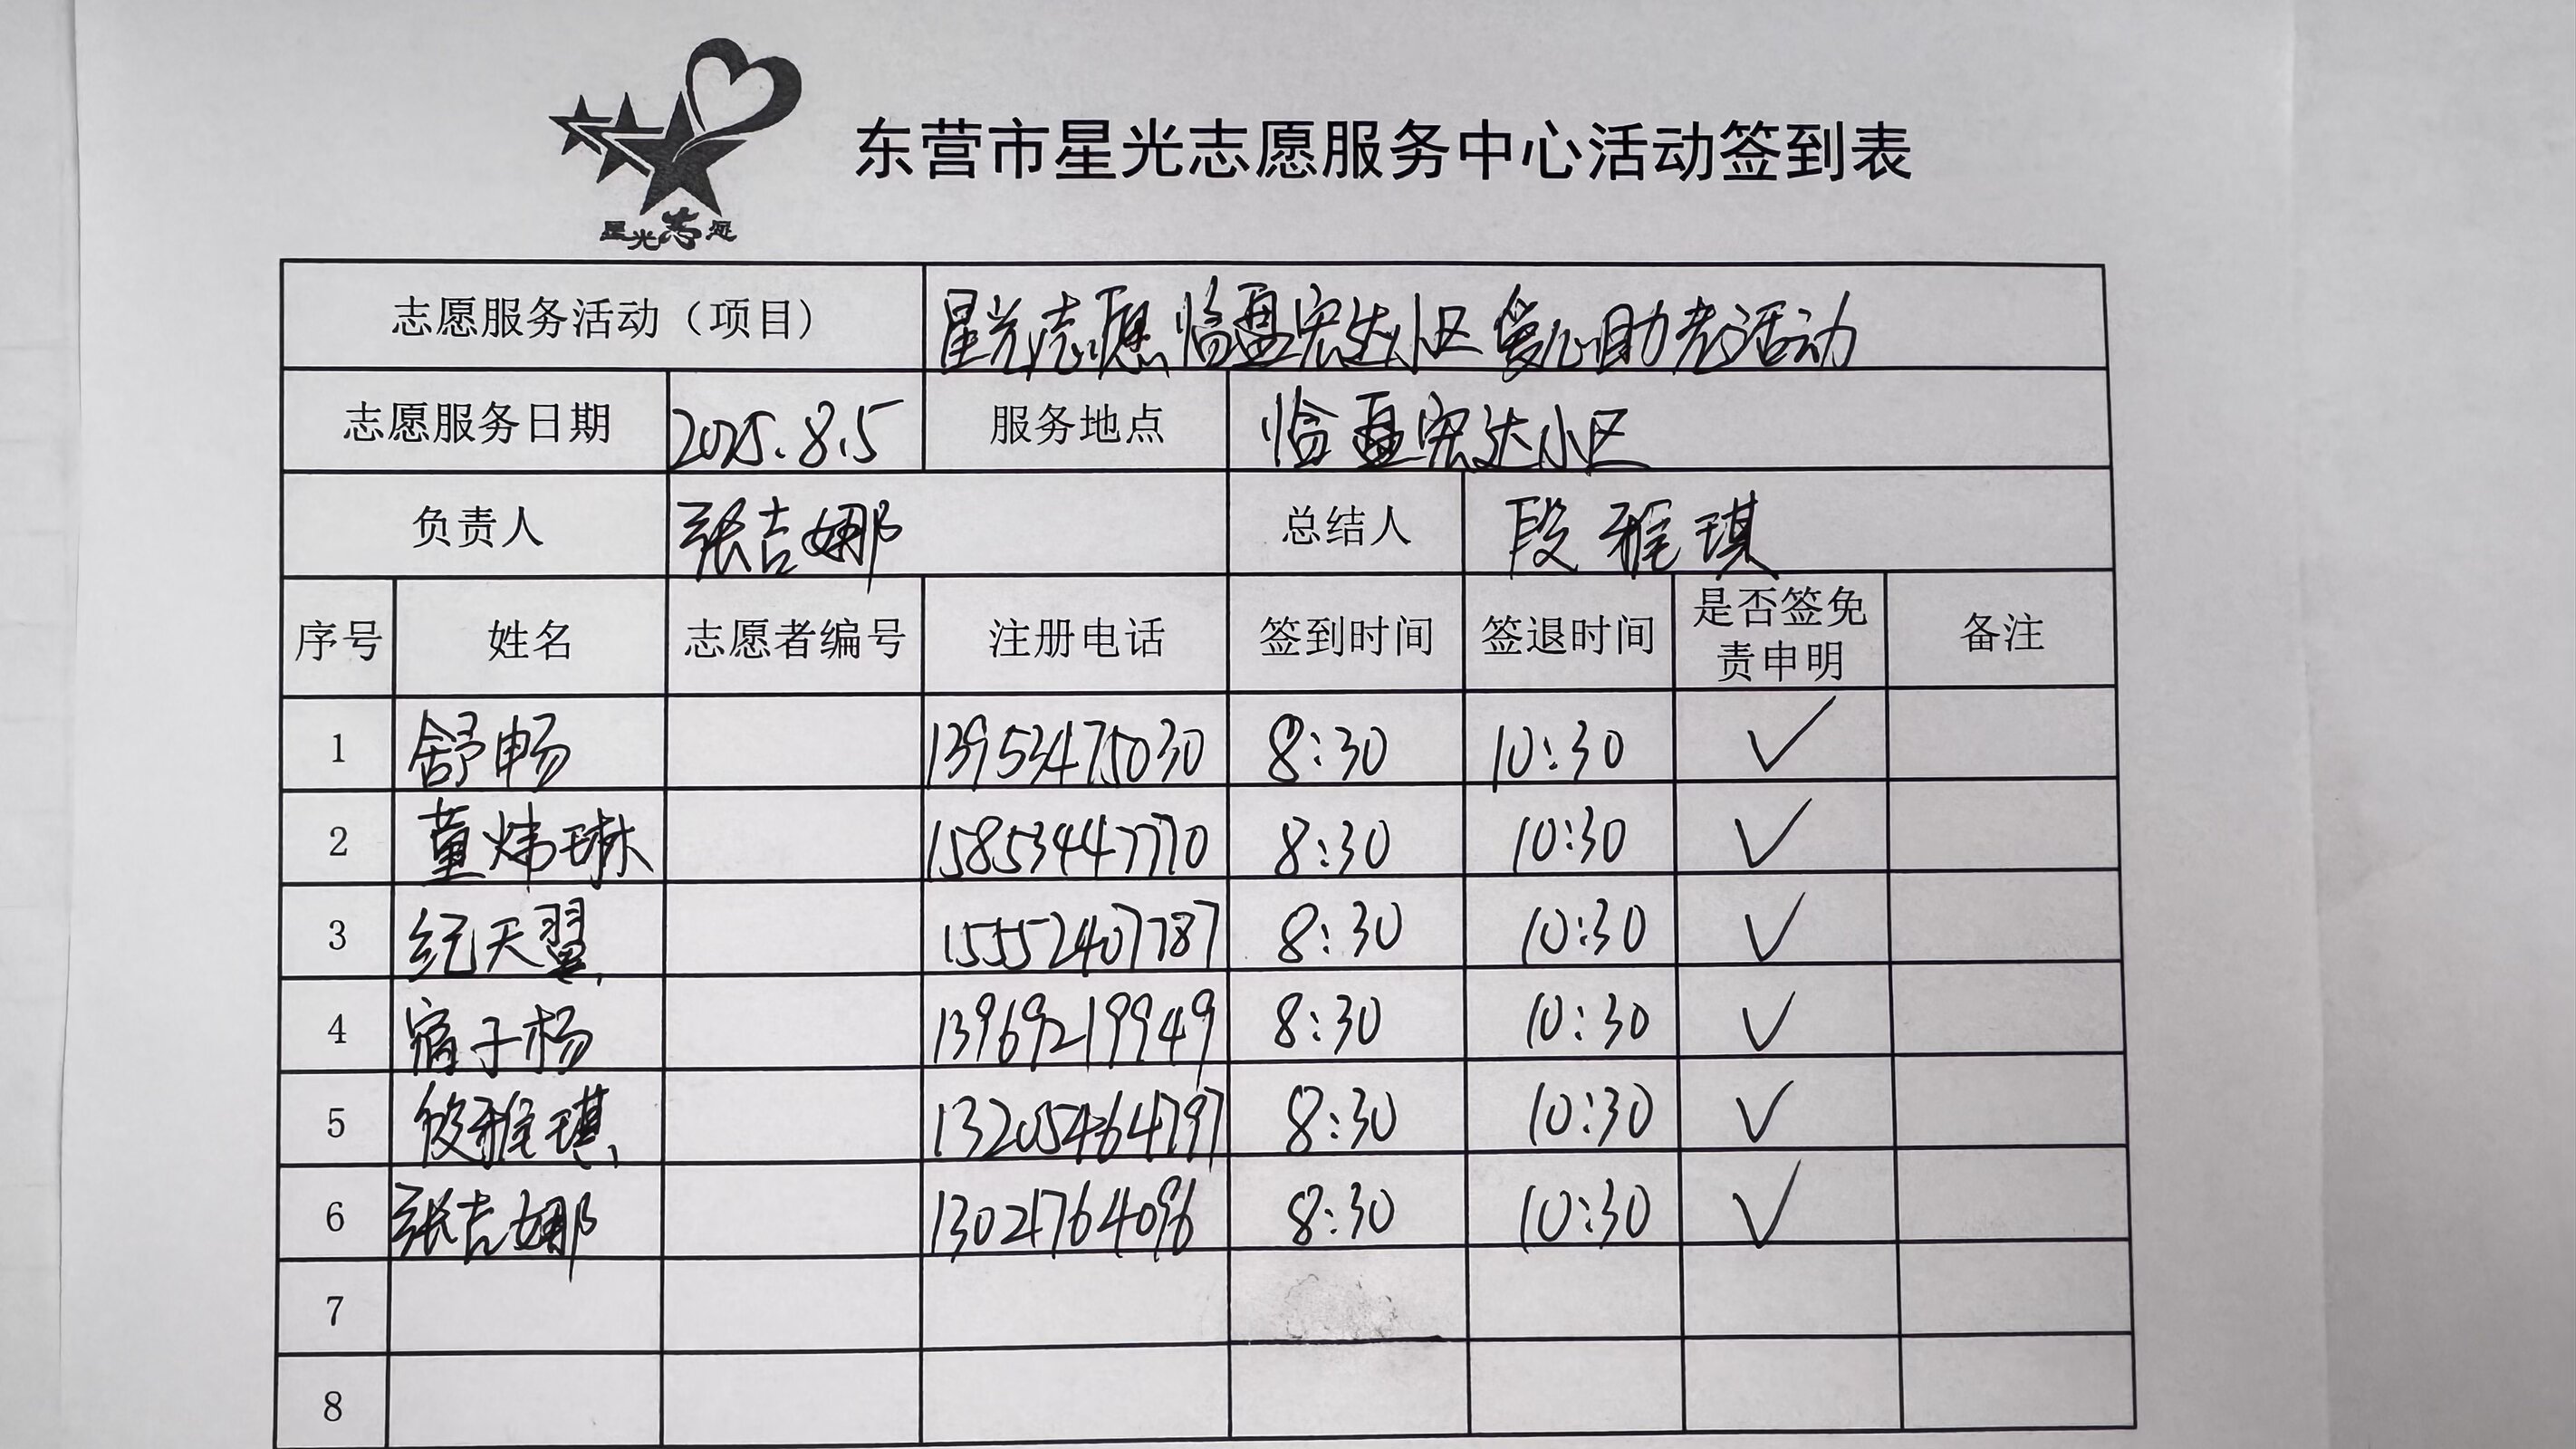 东营市星光志愿服务中心活动签到表
星光志愿
志愿服务活动（项目） 星光志愿临盘宏达小区爱心助老活动
志愿服务日期 2025.8.5 服务地点 临盘宏达小区
负责人 张吉娜 总结人 段雅琪
序号 姓名 志愿者编号 注册电话 签到时间 签退时间 是否签免责申明 备注
1 舒畅 13953475030 8:30 10:30 ✓
2 董炜琳 15853447770 8:30 10:30 ✓
3 纪天翼 15552407787 8:30 10:30 ✓
4 宿子杨 13969219949 8:30 10:30 ✓
5 段雅琪 13205464797 8:30 10:30 ✓
6 张吉娜 13021764096 8:30 10:30 ✓
7
8